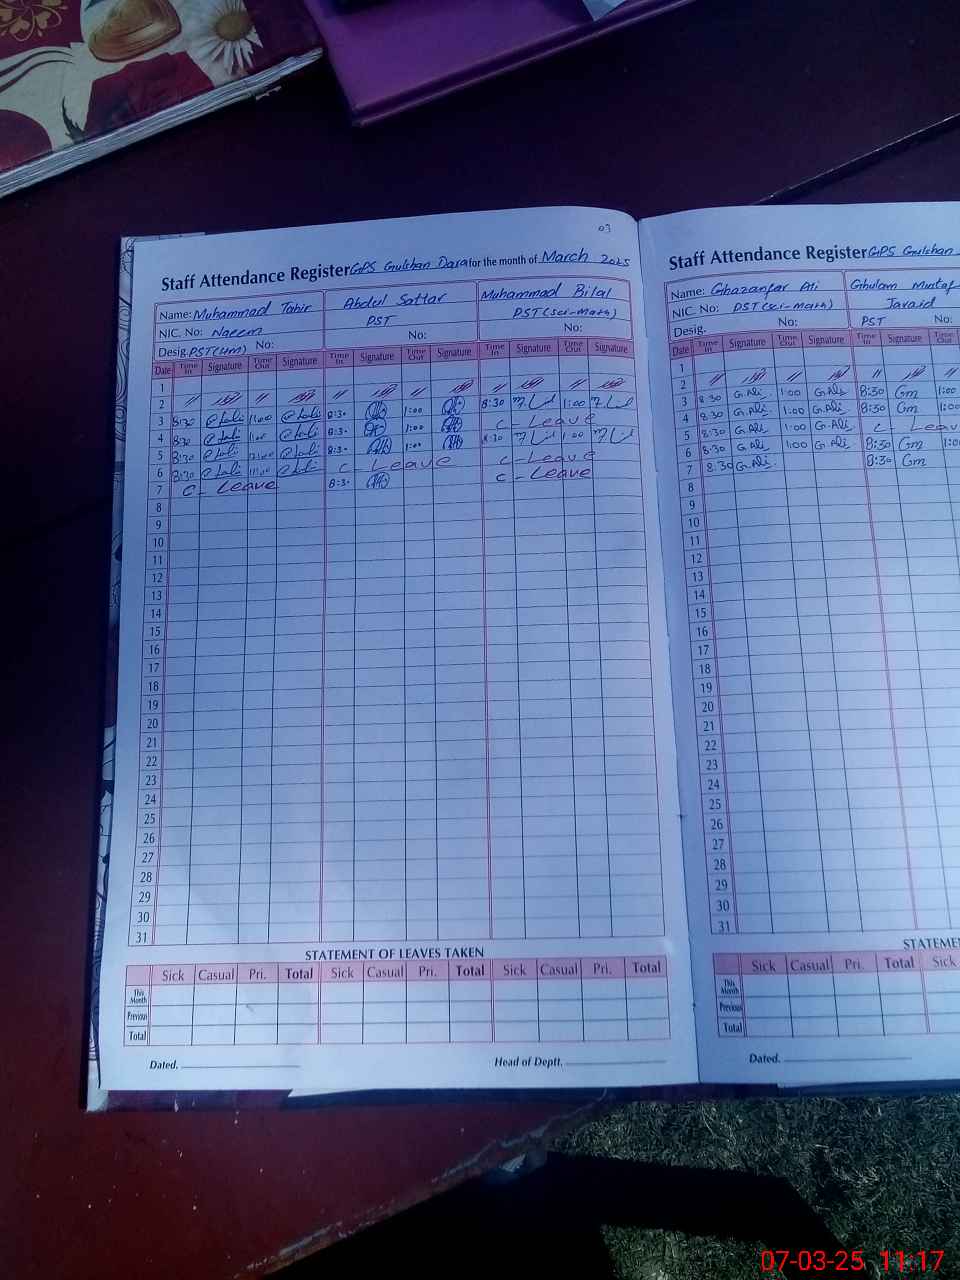 03
Staff Attendance Register GPS Gulshan Dara for the month of March 2025
Name: Muhammad Tahir Abdul Sattar Muhammad Bilal
NIC. No: Naeem PST PST (Sci-math)
Desig. PST(UM) No: No: No:
Date Time In Signature Time Out Signature Time In Signature Time Out Signature Time In Signature Time Out Signature
1
2 " " " " "
3 8:30 8:3. 1:00 8:30 1:00
4 8:30 8:3. 1:00 C - Leave
5 8:30 8:3. 1:00 8:30 1:00
6 8:30 C - Leave C - Leave
7 C - Leave 8:3. C - Leave
8
9
10
11
12
13
14
15
16
17
18
19
20
21
22
23
24
25
26
27
28
29
30
31
STATEMENT OF LEAVES TAKEN
Sick Casual Pri. Total Sick Casual Pri. Total Sick Casual Pri. Total
This Month
Previous
Total
Dated. Head of Deptt.
Staff Attendance Register GPS Gulshan
Name: Ghazanfar Ali Ghulam Mustaf
NIC. No: PST (Sci-math) Javaid
Desig. No: PST No:
Date Time In Signature Time Out Signature Time In Signature Time Out
1
2 " " "
3 8:30 G.Ali. 1:00 G.Ali 8:30 Gm 1:00
4 8:30 G.Ali. 1:00 G.Ali 8:30 Gm 1:00
5 8:30 G.Ali 1:00 G.Ali C - Leav
6 8:30 G.Ali 1:00 G.Ali 8:30 Gm 1:00
7 8:30 G.Ali. 8:30 Gm
8
9
10
11
12
13
14
15
16
17
18
19
20
21
22
23
24
25
26
27
28
29
30
31
STATEME
Sick Casual Pri. Total Sick
This Month
Previous
Total
Dated.
07-03-25 11:17